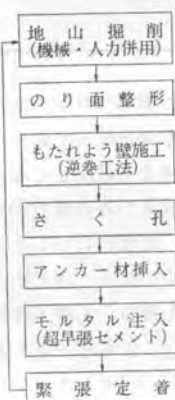 地山掘削
(機械・人力併用)
のり面整形
もたれよう壁施工
(逆巻工法)
さく孔
アンカー材挿入
モルタル注入
(超早強セメント)
緊張定着